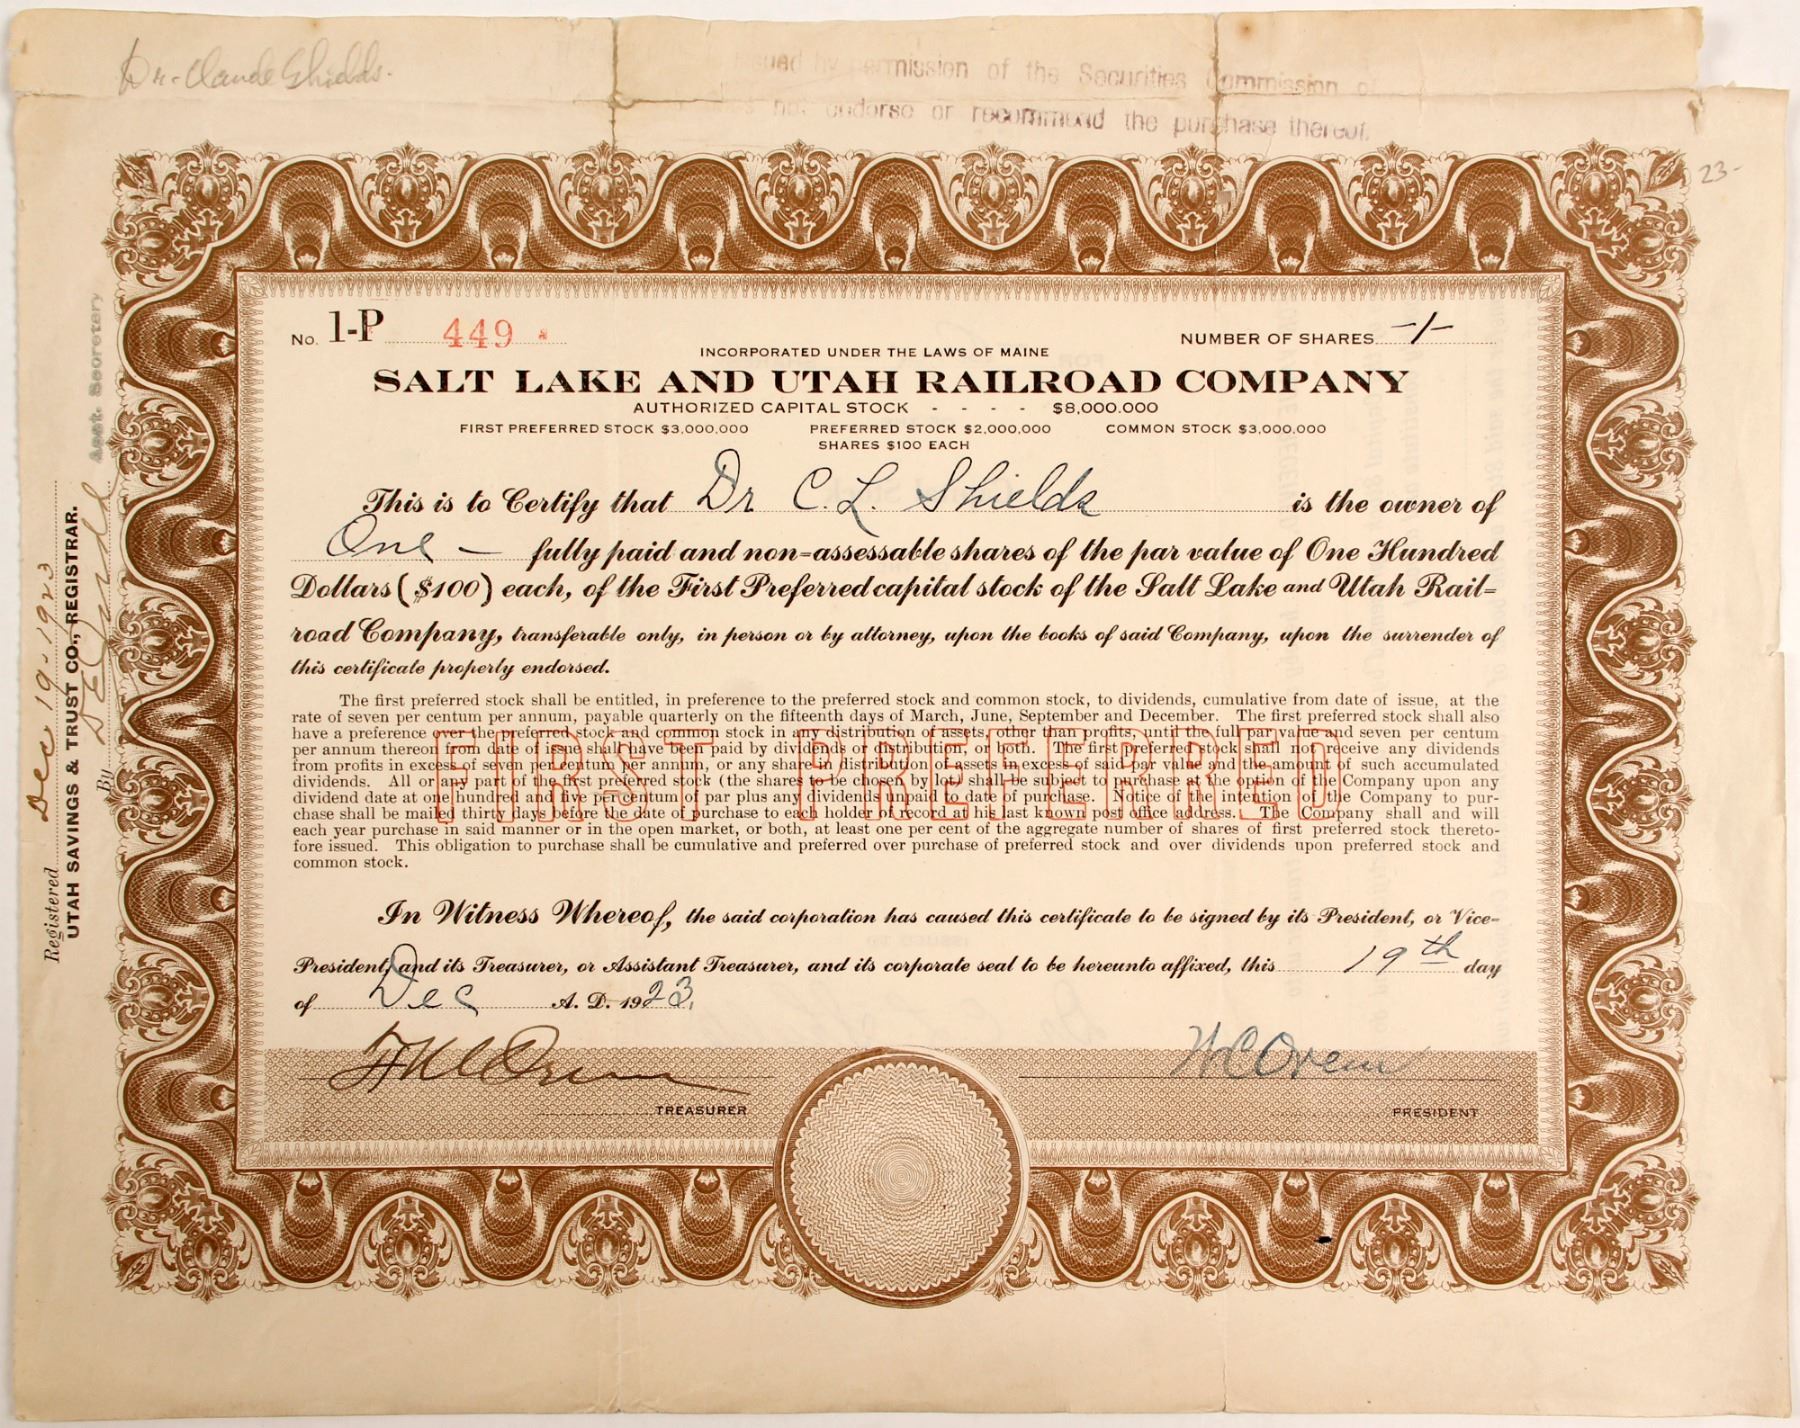 Dr. Claude Shields.
Issued by permission of the Securities Commission of
not endorse or recommend the purchase thereof.
23-
No. 1-P 449
NUMBER OF SHARES -1-
INCORPORATED UNDER THE LAWS OF MAINE
SALT LAKE AND UTAH RAILROAD COMPANY
AUTHORIZED CAPITAL STOCK - - - - $8,000.000
FIRST PREFERRED STOCK $3,000,000 PREFERRED STOCK $2,000,000 COMMON STOCK $3,000,000
SHARES $100 EACH
This is to Certify that Dr C. L. Shields is the owner of
One — fully paid and non-assessable shares of the par value of One Hundred
Dollars ($100) each, of the First Preferred capital stock of the Salt Lake and Utah Rail-
road Company, transferable only, in person or by attorney, upon the books of said Company, upon the surrender of
this certificate properly endorsed.
The first preferred stock shall be entitled, in preference to the preferred stock and common stock, to dividends, cumulative from date of issue, at the
rate of seven per centum per annum, payable quarterly on the fifteenth days of March, June, September and December. The first preferred stock shall also
have a preference over the preferred stock and common stock in any distribution of assets, other than profits, until the full par value and seven per centum
per annum thereon from date of issue shall have been paid by dividends or distribution or both. The first preferred stock shall not receive any dividends
from profits in excess of seven per centum per annum, or any share in distribution of assets in excess of said par value and the amount of such accumulated
dividends. All or any part of the first preferred stock (the shares to be chosen by lot) shall be subject to purchase at the option of the Company upon any
dividend date at one hundred and five per centum of par plus any dividends unpaid to date of purchase. Notice of the intention of the Company to pur-
chase shall be mailed thirty days before the date of purchase to each holder of record at his last known post office address. The Company shall and will
each year purchase in said manner or in the open market, or both, at least one per cent of the aggregate number of shares of first preferred stock thereto-
fore issued. This obligation to purchase shall be cumulative and preferred over purchase of preferred stock and over dividends upon preferred stock and
common stock.
FIRST PREFERRED
In Witness Whereof, the said corporation has caused this certificate to be signed by its President, or Vice-
President, and its Treasurer, or Assistant Treasurer, and its corporate seal to be hereunto affixed, this 19th day
of Dec A. D. 1923.
W C Orem
TREASURER
PRESIDENT
Registered Dec 19. 1923
UTAH SAVINGS & TRUST CO., REGISTRAR.
By
Asst. Secretary